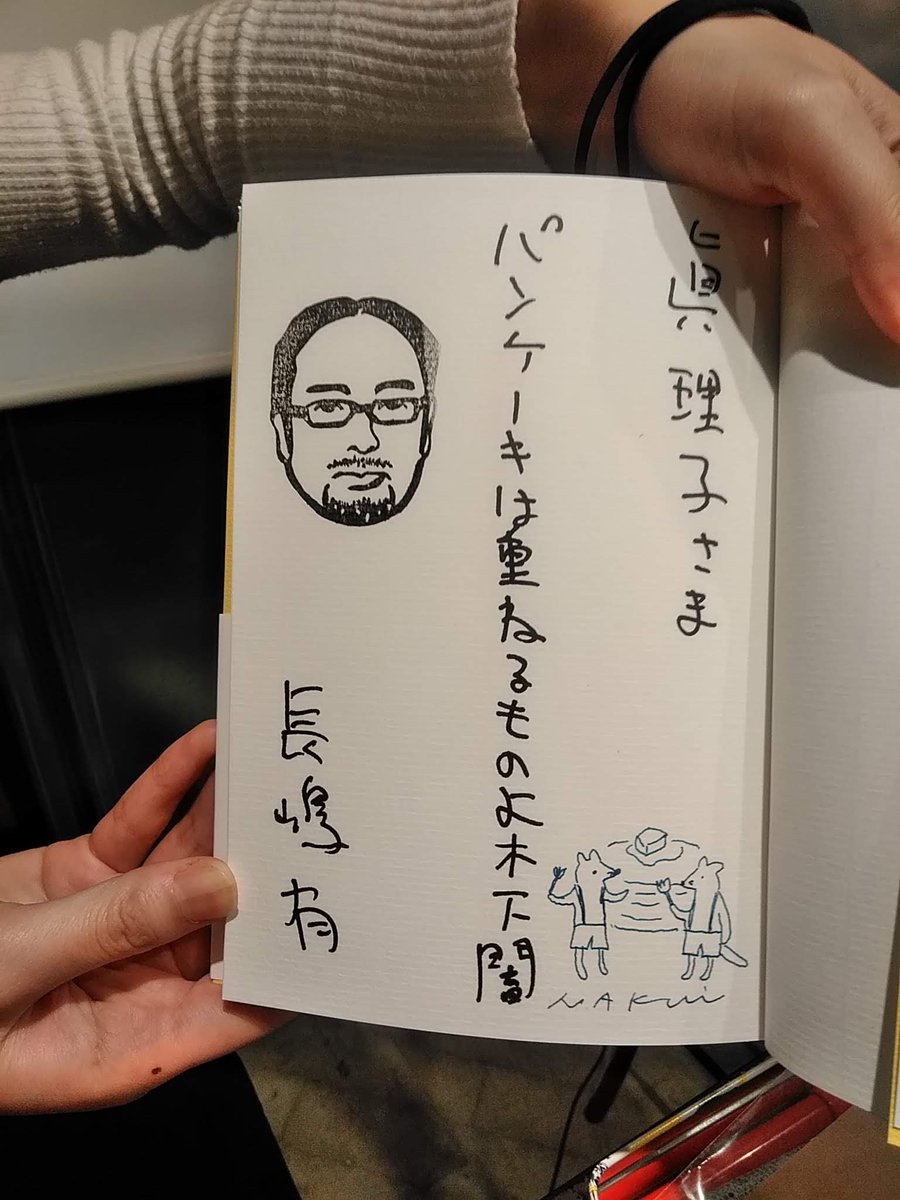 眞理子さま
パンケーキは重ねるものよ木下闇
長嶋有